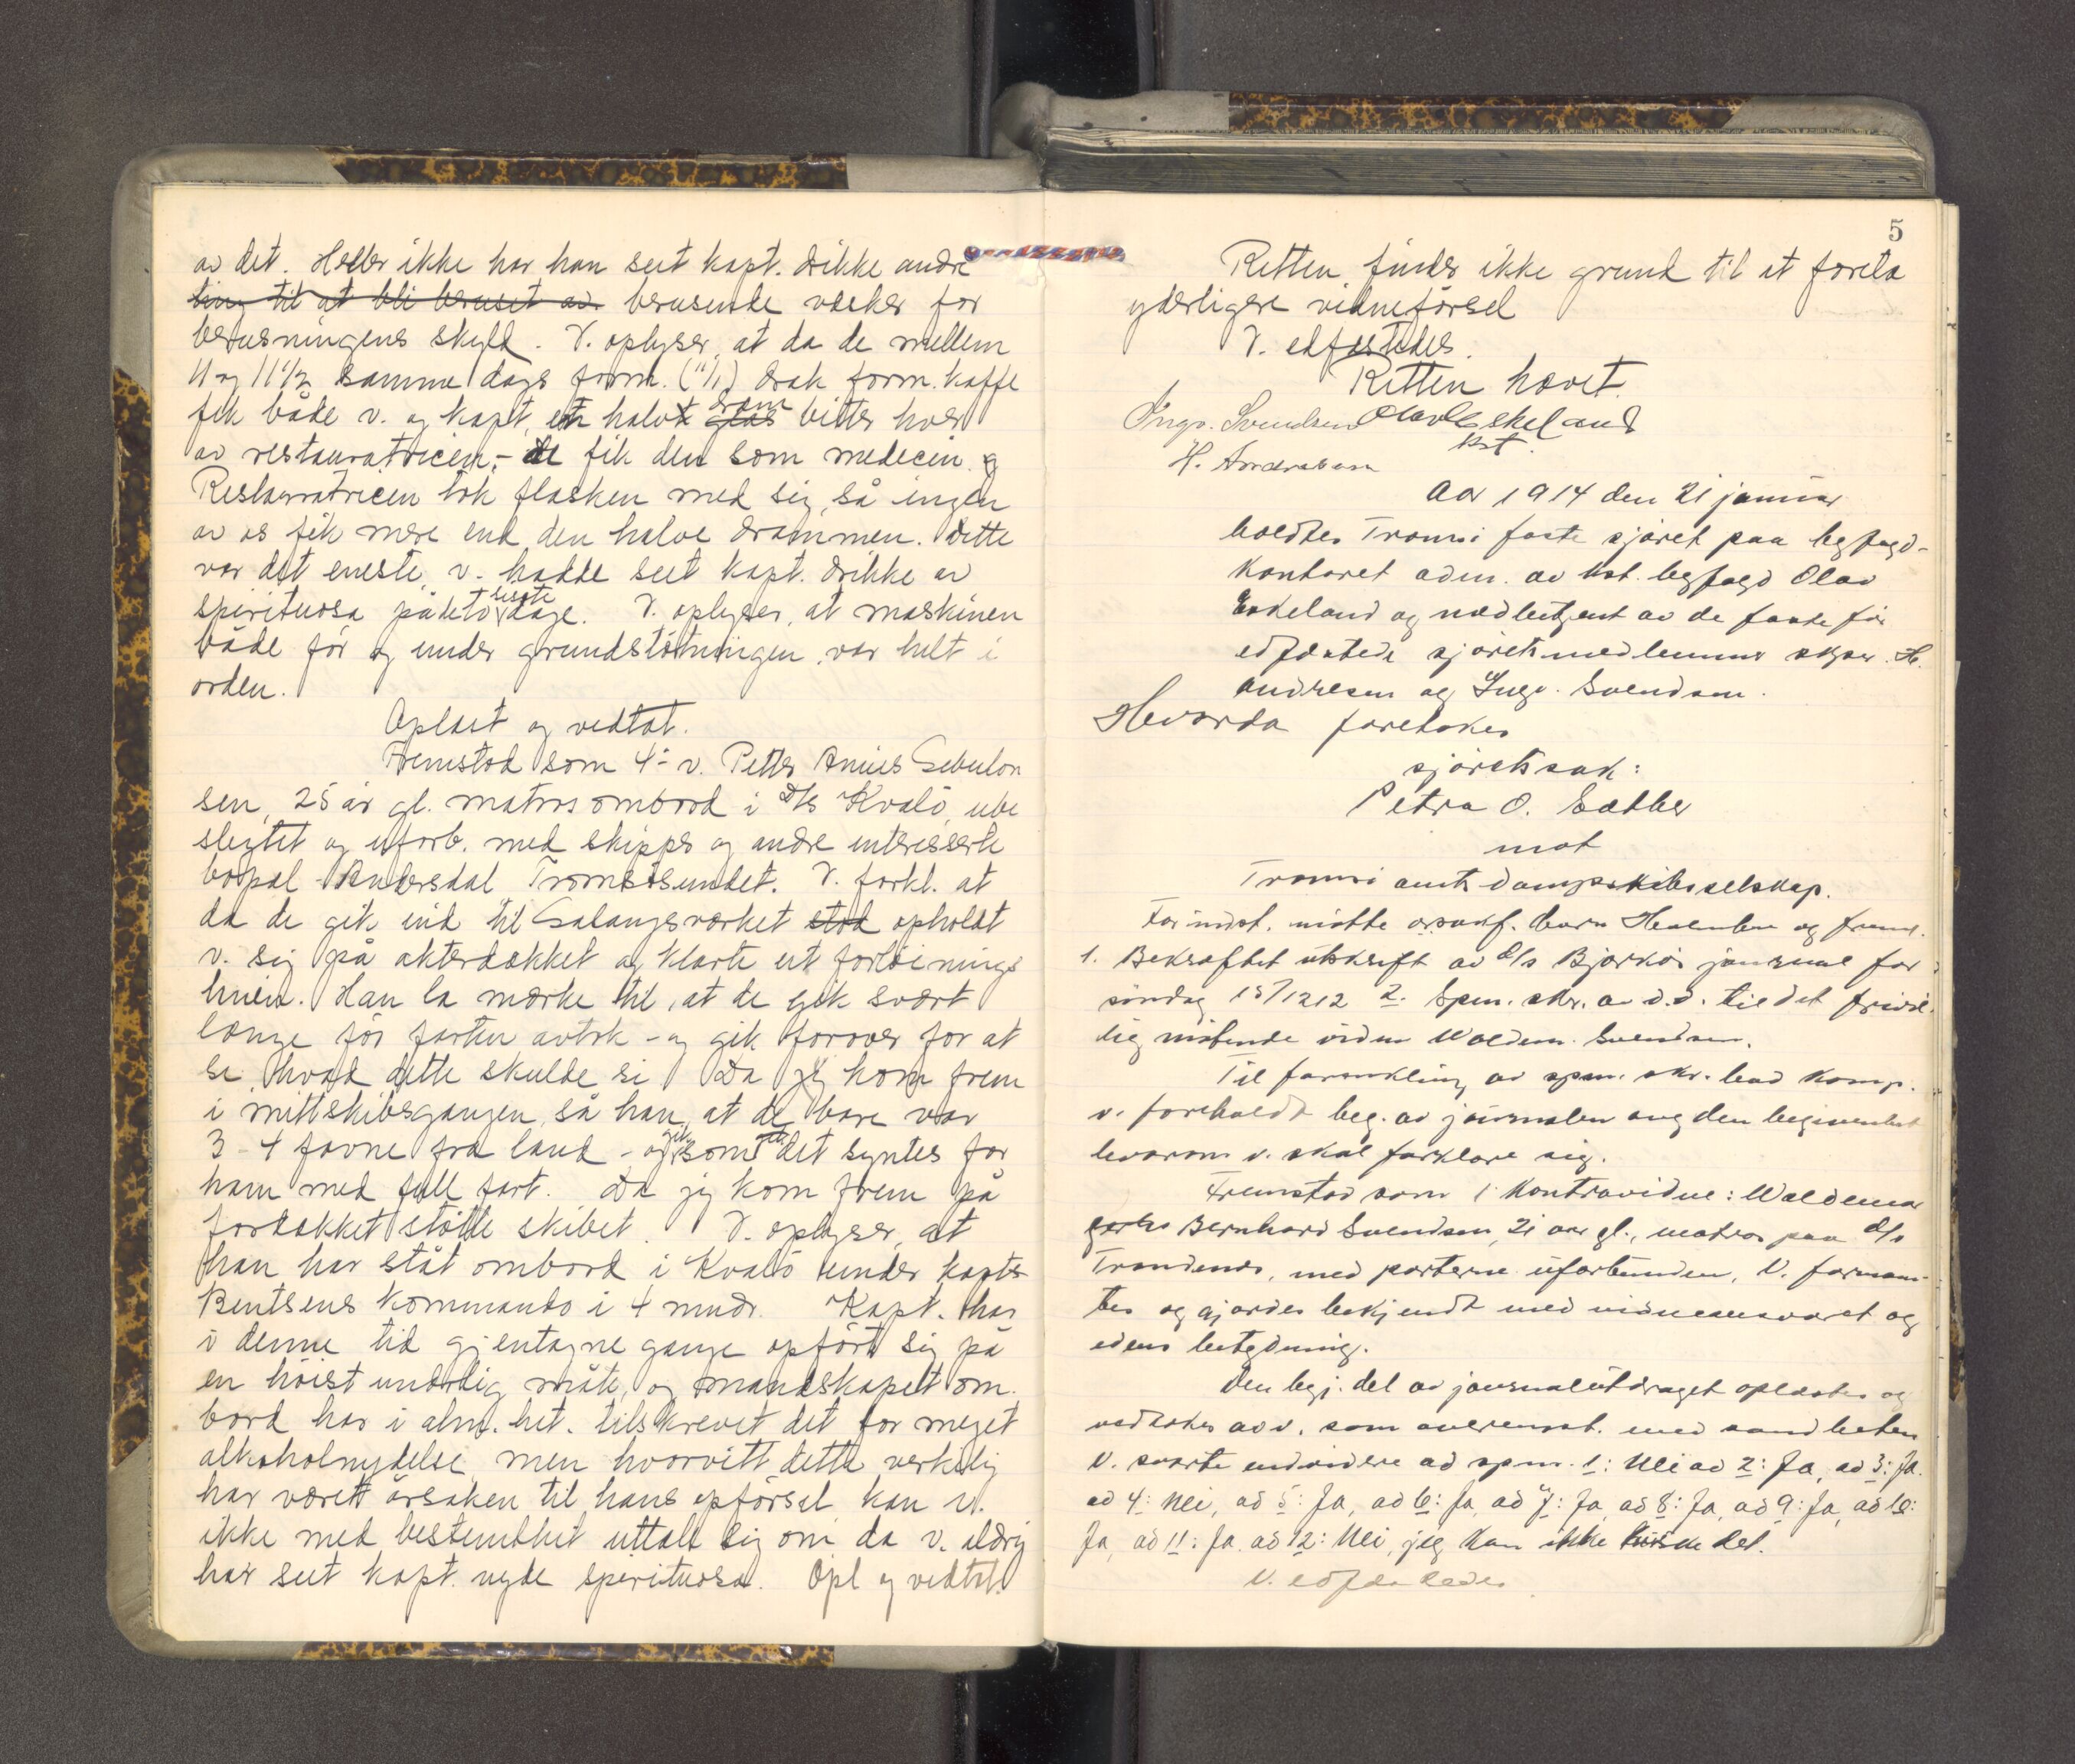 av det. Heller ikke har han seet kapt. drikke andre
ting til at bli beruset av berusende væsker for
berusningens skyld. V. oplyser, at da de mellem
11 og 11½ samme dags form. (11/1) drak form. kaffe
fik både v. og kapt. en halv dram bitter hver
av restauratricen, - de fik den som medecin. og
Restauratricen tok flasken med sig, så ingen
av os fik mere end den halve drammen. Dette
var det eneste, v. hadde seet kapt. drikke av
spirituosa på de to siste dage. V. oplyser, at maskinen
både før og under grundstøtningen, var helt i
orden.
Oplæst og vedtat.
Fremstod som 4- v. Petter Sebulon
sen, 25 år gl. matros ombord i D/S Kvalö, ube
slegtet og uforb. med skipper og andre interesserte
bopæl Andersdal Tromsösundet. V. forkl. at
da de gik ind til Salangsverket stod opholdt
v. sig på akterdækket og klarte ut fortöinings
linen. Han la mærke til, at de gik svært
længe för farten avtok - og gik forover for at
se, hvad dette skulde si. Da jeg kom frem
i mittskibsgangen, så han, at de bare var
3 - 4 favne fra land - og gik som det syntes for
ham med full fart. Da jeg kom frem på
fordækket stötte skibet. V. oplyser, at
han har ståt ombord i Kvalö under kapt
Bentsens kommando i 4 mndr. Kapt. har
i denne tid gjentagne gange opfört sig på
en höist underlig måte, og mandskapet om
bord har i alm.het. tilskrevet det for meget
alkoholnydelse, men hvorvitt dette verkelig
har været årsaken til hans opförsel kan v.
ikke med bestemdhet uttale sig om da v. aldrig
har seet kapt. nyde spirituosa. Opl og vedtat.
5
Retten finder ikke grund til at foreta
yderligere vidneförsel
V. edfæstedes.
Retten hævet.
Ingv. Svendsen Olav Eskeland
kst.
H. Andresen
Aar 1914 den 21 januar
holdtes Tromsö faste sjöret paa byfogd-
kontoret adm. av kst. byfogd Olav
Eskeland og medbetjent av de faste för
edfæstede sjöretsmedlemmer skper. H.
Andresen og Ingv. Svendsen.
Hvorda foretokes
sjöretssak:
Petra O.
mot
Tromsö amts dampskibsselskap.
For indst. mötte orsakf. og frem.
1. Bekræftet utskrift av D/s Bjarköis journal for
söndag 15/12 12 2. Spm. skr. av d.d. til det frivil.
lig mötende vidne Waldem. Svendsen.
Til av spm. skr. blev komp.
v. foreholdt beg. av journalen ang den begivenhet
hvorom v. skal forklare sig.
Fremstod som 1 Kontravidne: Waldemar
Bernhard Svendsen, 21 aar gl., matros paa D/s
Trondenes, med parterne uforbunden, V. forman-
tes og gjordes bekjendt med vidneansvaret og
edens betydning.
Den begj. del av journalutdraget oplæstes og
vedtokes av v. som overensst. med sandheten
V. svarte endvidere ad spm. 1: Nei ad 2: Ja, ad 3: Ja.
ad 4: Nei, ad 5: Ja, ad 6: Ja, ad 7: Ja, ad 8: Ja, ad 9: Ja, ad 10:
Ja, ad 11: Ja, ad 12: Nei, jeg kan ikke huske det.
V. edfæstedes.